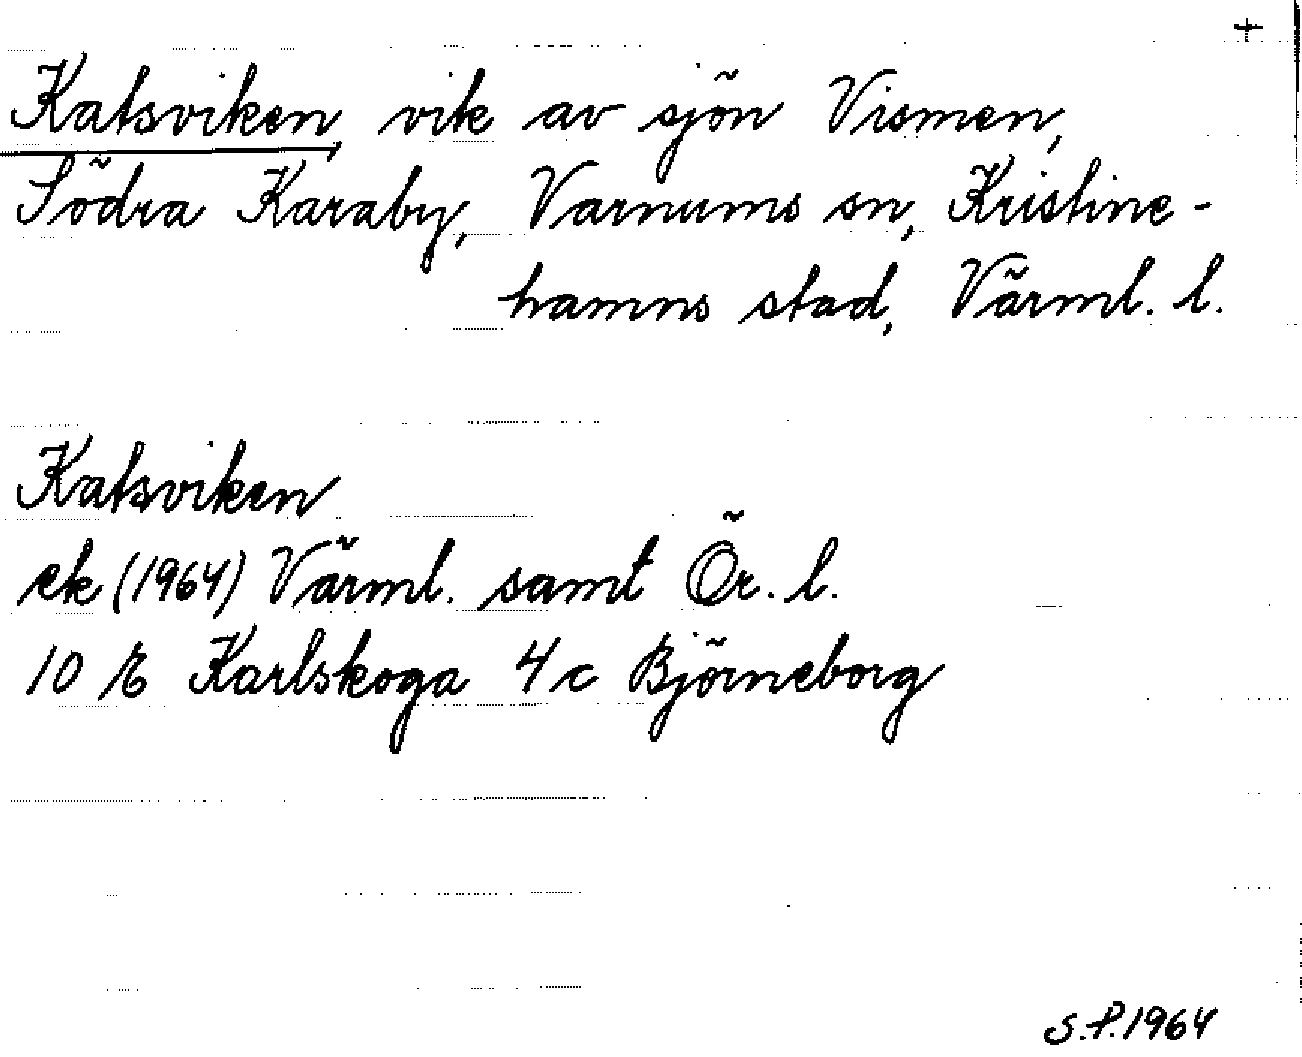 +
Katsviken, vik av sjön Vismen,
Södra Karaby, Varnums sn, Kristine-
hamns stad, Värml. l.
Katsviken
ek (1964) Värml. samt Ör. l.
10 E Karlskoga 4c Björneborg
S.P. 1964